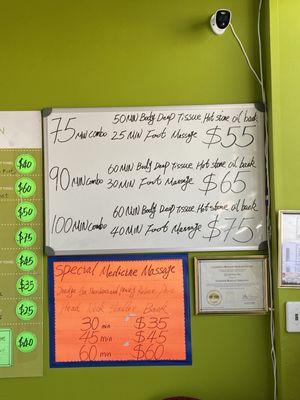 75 MIN combo
50 MIN Body Deep Tissue Hot stone oil back
25 MIN Foot Massage $55
90 MIN combo
60 MIN Body Deep Tissue Hot stone oil back
30 MIN Foot Massage $65
100 MIN combo
60 MIN Body Deep Tissue Hot stone oil back
40 MIN Foot Massage $75
$40
$60
$50
$75
$45
$35
$25
$40
Special Medicine Massage
Head Neck
30 min $35
45 min $45
60 min $60